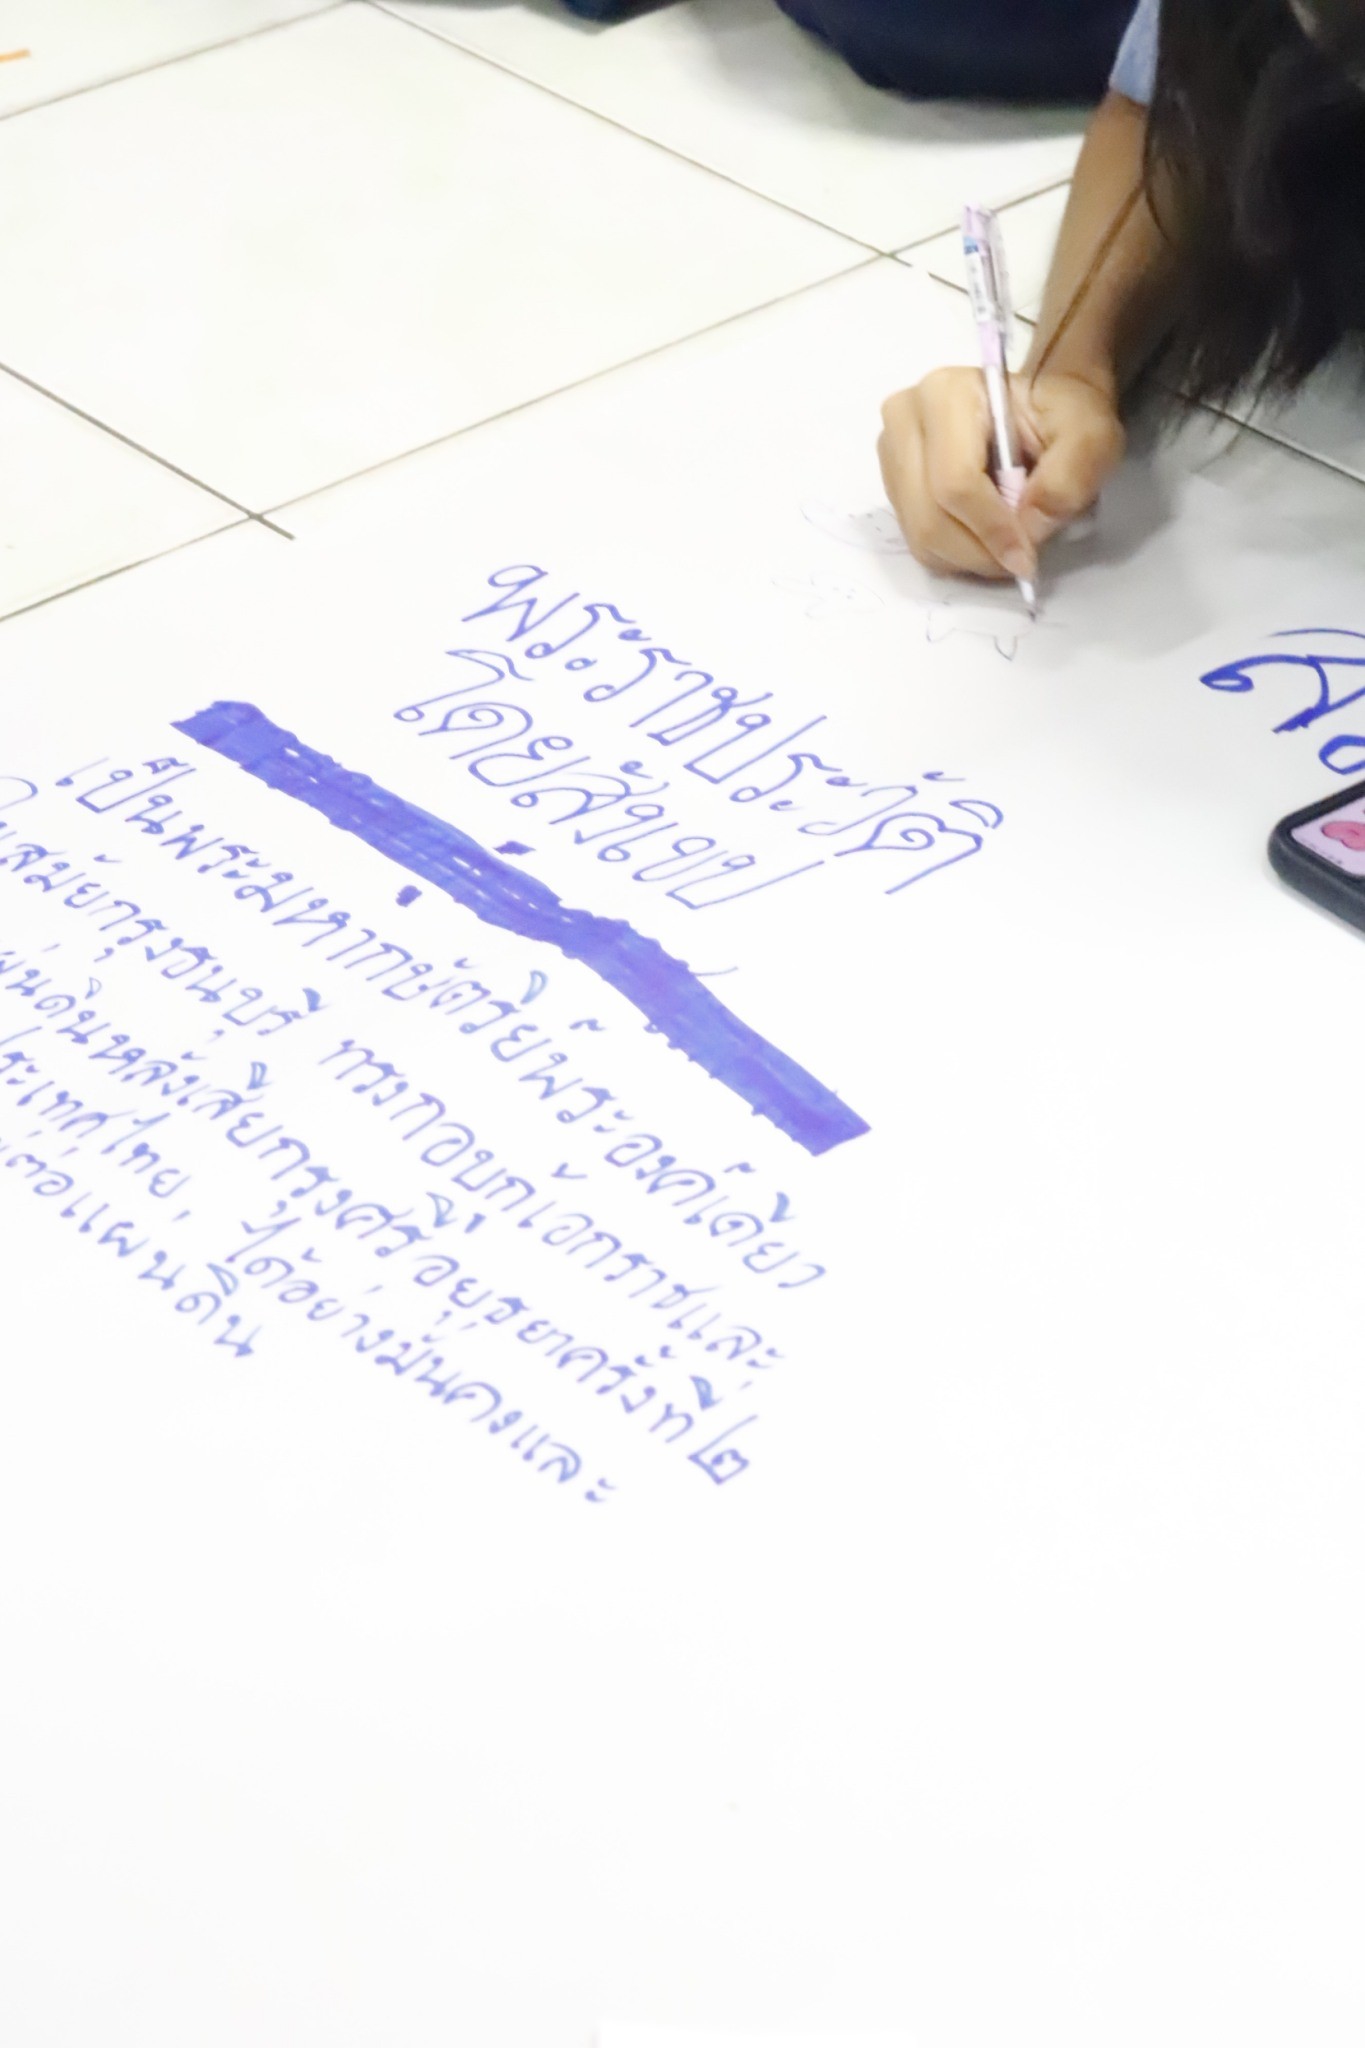 พระราชประวัติ
โดยสังเขป
เป็นพระมหากษัตริย์พระองค์เดียว
ในสมัยกรุงธนบุรี ทรงกอบกู้เอกราชและ
ผ่นดินหลังเสียกรุงศรีอยุธยาครั้งที่ ๒
ระเทศไทย ได้อย่างมั่นคงและ
ต่อแผ่นดิน